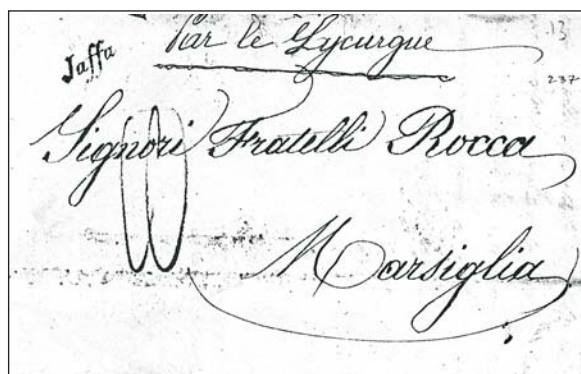 Par le Lycurgue
13
Jaffa
237
Signori Fratelli Rocca
Marsiglia